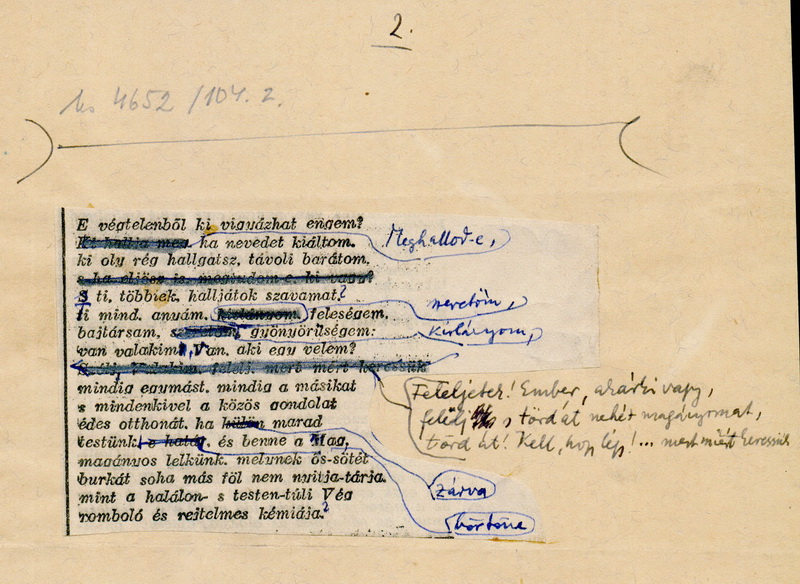 2.
Ms 4652/104. 2.
E végtelenből ki vigyázhat engem?
Ki hallja meg, ha nevedet kiáltom, Meghallod-e,
ki oly rég hallgatsz, távoli barátom,
s ha eljösz is, megtudom-e, ki vagy?
S ti, többiek, halljátok szavamat?
ti mind, anyám, kislányom, feleségem, nevetőm,
bajtársam, gyönyörűségem: kislányom,
van valakim, Van, aki egy velem?
S ha Valakim, felelj, mert mért keressük
mindig egymást, mindig a másikat
s mindenkivel a közös gondolat
édes otthonát, ha külön marad
testünk, s határ, és benne a Mag,
magányos lelkünk, melynek ős-sötét
burkát soha más föl nem nyitja-tárja,
mint a halálon- s testen-túli Vég
romboló és rejtelmes kémiája?
Feleljetek! Ember, akárki vagy,
felelj s törd át nehéz magányomat,
törd át! Kell, hogy légy!... mert miért keressük
zárva
börtöne